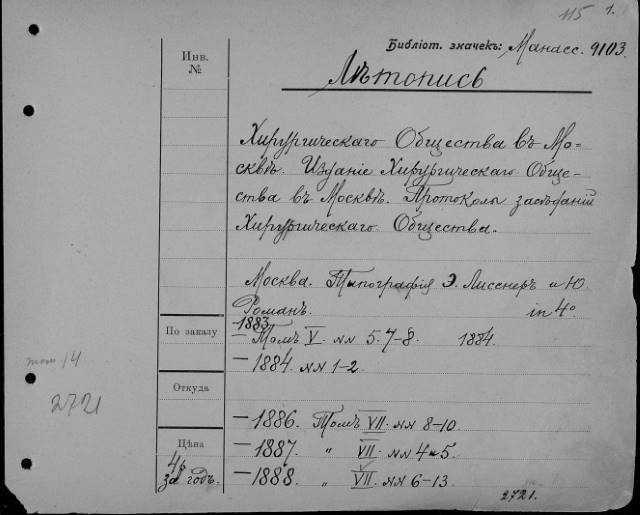 115 1.
Библіот. значекъ: Манасс. 9103.
Инв.
№
Лѣтопись
Хирургическаго Общества въ Мо=
сквѣ. Изданіе Хирургическаго Обще-
ства въ Москвѣ. Протоколы засѣданій
Хирургическаго Общества.
Москва. Типографія Э. Лисснеръ и Ю.
Романъ. in 4°
По заказу
1883.
— Томъ V. №№ 5. 7-8. 1884.
— 1884. №№ 1-2.
Откуда
2721
— 1886. Томъ VII. №№ 8-10.
Цѣна
— 1887. " VII. №№ 4 и 5.
4 р
за годъ.
— 1888. " VII. №№ 6-13.
2721.